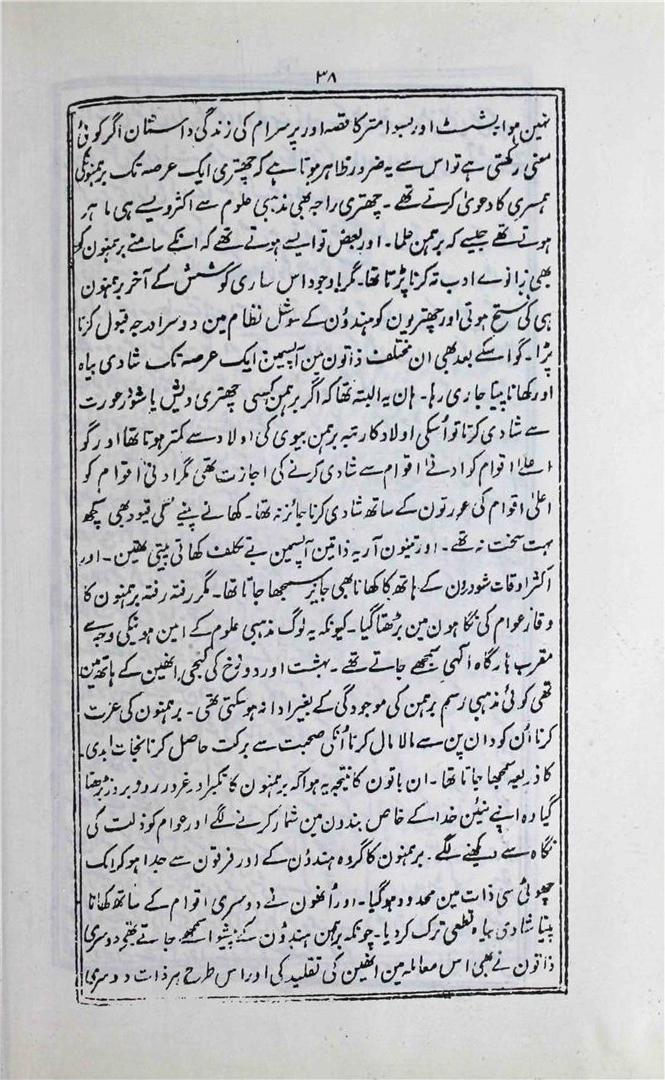 ۳۸
نہین ہوا بشٹ اور بسوا متر کا قصہ اور پرسرام کی زندگی داستان اگر کوئی
معنی رکھتی ہے تو اس سے یہ ضرور ظاہر ہوتا ہے کہ چھتری ایک عرصہ تک برہمنونکی
ہمسری کا دعویٰ کرتے تھے ۔ چھتری راجہ بھی مذہبی علوم سے اکثر ویسے ہی ماہر
ہوتے تھے جیسے کہ برہمن علما ۔ اور بعض تو ایسے ہوتے تھے کہ انکے سامنے برہمنون کو
بھی زانوے ادب تہ کرنا پڑتا تھا۔ مگر باوجود اس ساری کوشش کے آخر برہمنون
ہی کی فتح ہوتی اور چھتریون کو ہندؤن کے سوشل نظام مین دوسرا درجہ قبول کرنا
پڑا ۔ گو اسکے بعد بھی ان مختلف ذاتون مین آپسمین ایک عرصہ تک شادی بیاہ
اور کھانا پینا جاری رہا ۔ ہان یہ البتہ تھا کہ اگر برہمن کسی چھتری ویش یا شودر عورت
سے شادی کرتا تو اُسکی اولاد کا رتبہ برہمن بیوی کی اولاد سے کمتر ہوتا تھا اور گو
اعلےٰ اقوام کو ادنےٰ اقوام سے شادی کرنے کی اجازت تھی مگر ادنیٰ اقوام کو
اعلیٰ اقوام کی عورتون کے ساتھ شادی کرنا جائز نہ تھا ۔ کھانے پینے کی قیود بھی کچھ
بہت سخت نہ تھے ۔ اور تینون آریہ ذاتین آپسمین بے تکلف کھاتی پیتی تھین ۔ اور
اکثر اوقات شودرون کے ہاتھ کا کھانا بھی جائز سمجھا جاتا تھا ۔ مگر رفتہ رفتہ برہمنون کا
وقار عوام کی نگاہون مین بڑھتا گیا ۔ کیونکہ یہ لوگ مذہبی علوم کے امین ہونیکی وجہ سے
مقرب بارگاہ الٰہی سمجھے جاتے تھے ۔ بہشت اور دوزخ کی کنجی انھین کے ہاتھ مین
تھی کوئی مذہبی رسم برہمن کی موجودگی کے بغیر ادا نہ ہو سکتی تھی ۔ برہمنون کی عزت
کرنا اُن کو دان پن سے مالا مال کرنا اُنکی صحبت سے برکت حاصل کرنا نجات ابدی
کا ذریعہ سمجھا جاتا تھا ۔ ان باتون کا نتیجہ یہ ہوا کہ برہمنون کا تکبر اور غرور روز بروز بڑھتا
گیا وہ اپنے تئین خدا کے خاص بندون مین شمار کرنے لگے اور عوام کو ذلت کی
نگاہ سے دیکھنے لگے ۔ برہمنون کا گروہ ہندؤن کے اور فرقون سے جدا ہو کر ایک
چھوٹی سی ذات مین محدود ہو گیا ۔ اور اُنھون نے دوسری اقوام کے ساتھ کھانا
پینا شادی بیاہ قطعی ترک کر دیا ۔ چونکہ برہمن ہندؤن کے پیشوا سمجھے جاتے تھے دوسری
ذاتون نے بھی اس معاملہ مین انھین کی تقلید کی اور اس طرح ہر ذات دوسری